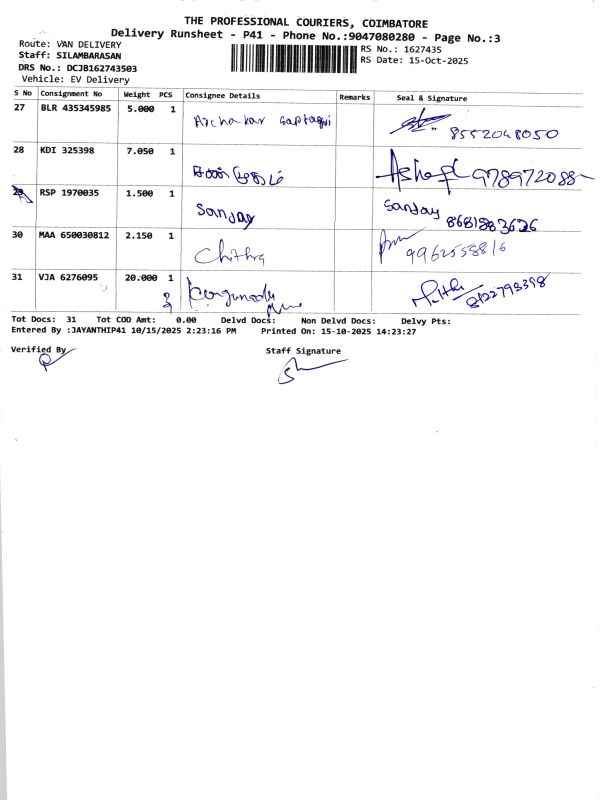 THE PROFESSIONAL COURIERS, COIMBATORE
Delivery Runsheet - P41 - Phone No.:9047080280 - Page No.:3
Route: VAN DELIVERY
Staff: SILAMBARASAN
DRS No.: DCJB162743503
Vehicle: EV Delivery
RS No.: 1627435
RS Date: 15-Oct-2025
S No Consignment No Weight PCS Consignee Details Remarks Seal & Signature
27 BLR 435345985 5.000 1
8552048050
28 KDI 325398 7.050 1
978972088
29 RSP 1970035 1.500 1 Sanjay Sanjay
8681883626
30 MAA 650030812 2.150 1 Chithra
9962558816
31 VJA 6276095 20.000 1
Tot Docs: 31 Tot COD Amt: 0.00 Delvd Docs: Non Delvd Docs: Delvy Pts:
Entered By :JAYANTHIP41 10/15/2025 2:23:16 PM Printed On: 15-10-2025 14:23:27
Verified By Staff Signature